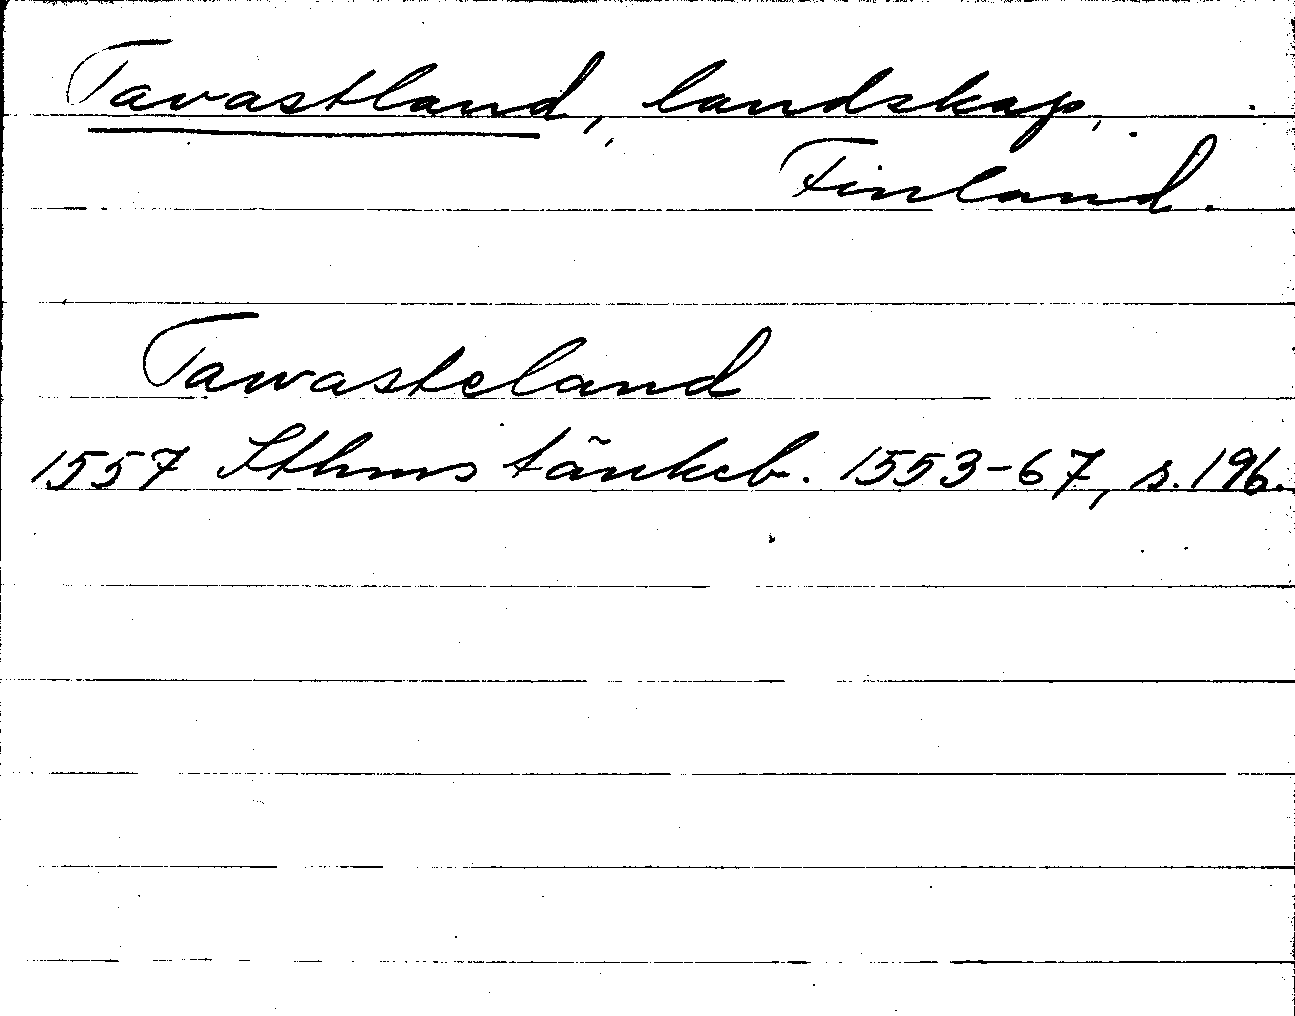 Tavastland, landskap,
Finland.
Tawasteland
1557 Sthms tänkeb. 1553-67, s. 196.